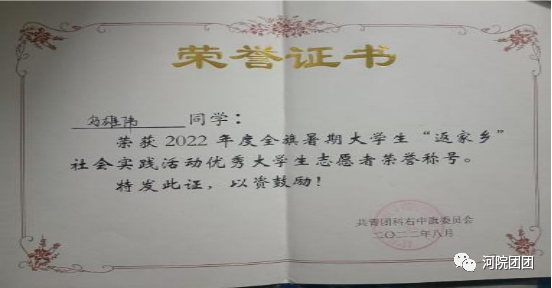 荣誉证书
雄伟 同学：
荣获2022年度全旗暑期大学生“返家乡”
社会实践活动优秀大学生志愿者荣誉称号。
特发此证，以资鼓励！
共青团科右中旗委员会
二〇二二年八月
河院团团